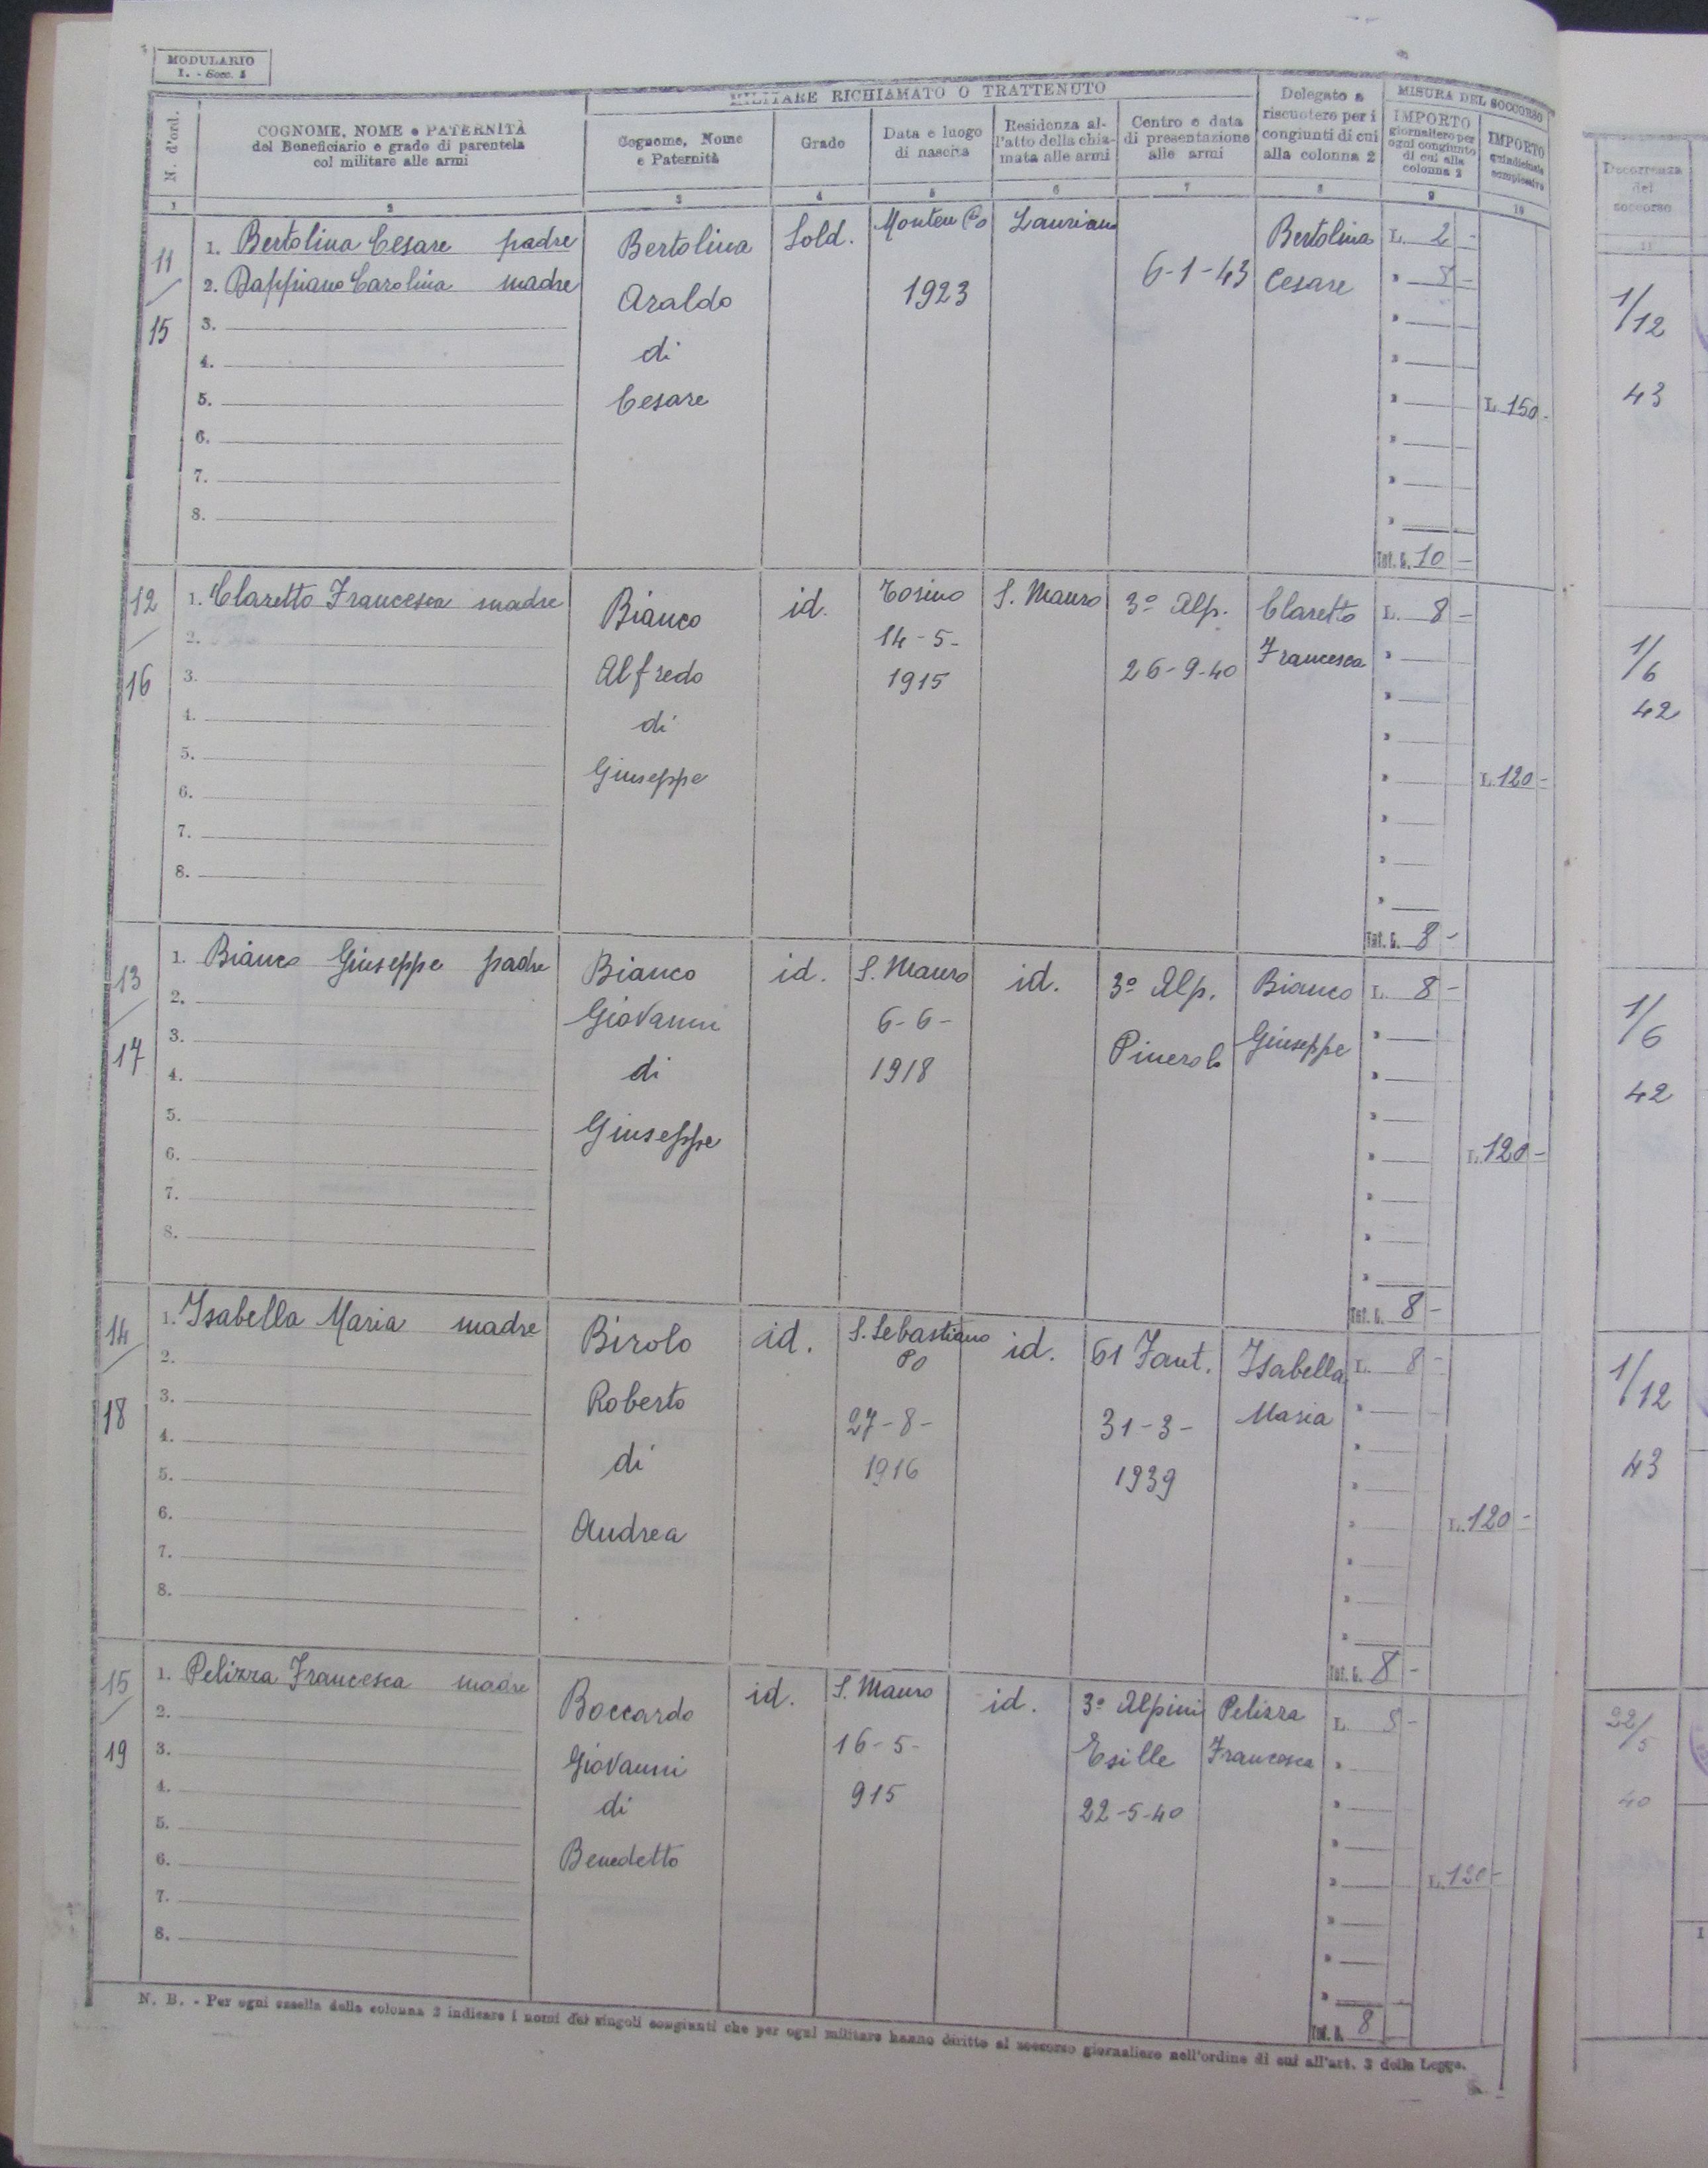 MODULARIO
I. - Socc. 1
N. d'ord.
COGNOME, NOME e PATERNITÀ
del Beneficiario e grado di parentela
col militare alle armi
MILITARE RICHIAMATO O TRATTENUTO
Cognome, Nome
e Paternità
Grado
Data e luogo
di nascita
Residenza al-
l'atto della chia-
mata alle armi
Centro e data
di presentazione
alle armi
Delegato a
riscuotere per i
congiunti di cui
alla colonna 2
MISURA DEL SOCCORSO
IMPORTO
giornaliero per
ogni congiunto
di cui alla
colonna 2
IMPORTO
quindicinale
complessivo
Decorrenza
del
soccorso
1 2 3 4 5 6 7 8 9 10 11
11
15
1. Bertolina Cesare padre
2. Carolina madre
3.
4.
5.
6.
7.
8.
Bertolina
Araldo
di
Cesare
Sold.
Monteu Po
1923
Lauriano
6-1-43
Bertolina
Cesare
L. 2 -
"
"
"
"
"
"
"
Tot. G. 10 -
L. 150 -
1/12
43
12
16
1. Claretto Francesca madre
2.
3.
4.
5.
6.
7.
8.
Bianco
Alfredo
di
Giuseppe
id.
Torino
14-5-
1915
S. Mauro
3º Alp.
26-9-40
Claretto
Francesca
L. 8 -
"
"
"
"
"
"
"
Tot. G. 8 -
L. 120 -
1/6
42
13
17
1. Bianco Giuseppe padre
2.
3.
4.
5.
6.
7.
8.
Bianco
Giovanni
di
Giuseppe
id.
S. Mauro
6-6-
1918
id.
3º Alp.
Pinerolo
Bianco
Giuseppe
L. 8 -
"
"
"
"
"
"
"
Tot. G. 8 -
L. 120 -
1/6
42
14
18
1. Isabella Maria madre
2.
3.
4.
5.
6.
7.
8.
Birolo
Roberto
di
Andrea
id.
S. Sebastiano
Po
27-8-
1916
id.
61 Fant.
31-3-
1939
Isabella
Maria
L. 8 -
"
"
"
"
"
"
"
Tot. G. 8 -
L. 120 -
1/12
43
15
19
1. Pelizza Francesca madre
2.
3.
4.
5.
6.
7.
8.
Boccardo
Giovanni
di
Benedetto
id.
S. Mauro
16-5-
915
id.
3º Alpini
Esille
22-5-40
Pelizza
Francesca
L. -
"
"
"
"
"
"
"
Tot. G. 8
L. 120 -
22/5
40
N. B. - Per ogni casella della colonna 2 indicare i nomi dei singoli congiunti che per ogni militare hanno diritto al soccorso giornaliero nell'ordine di cui all'art. 3 della Legge.